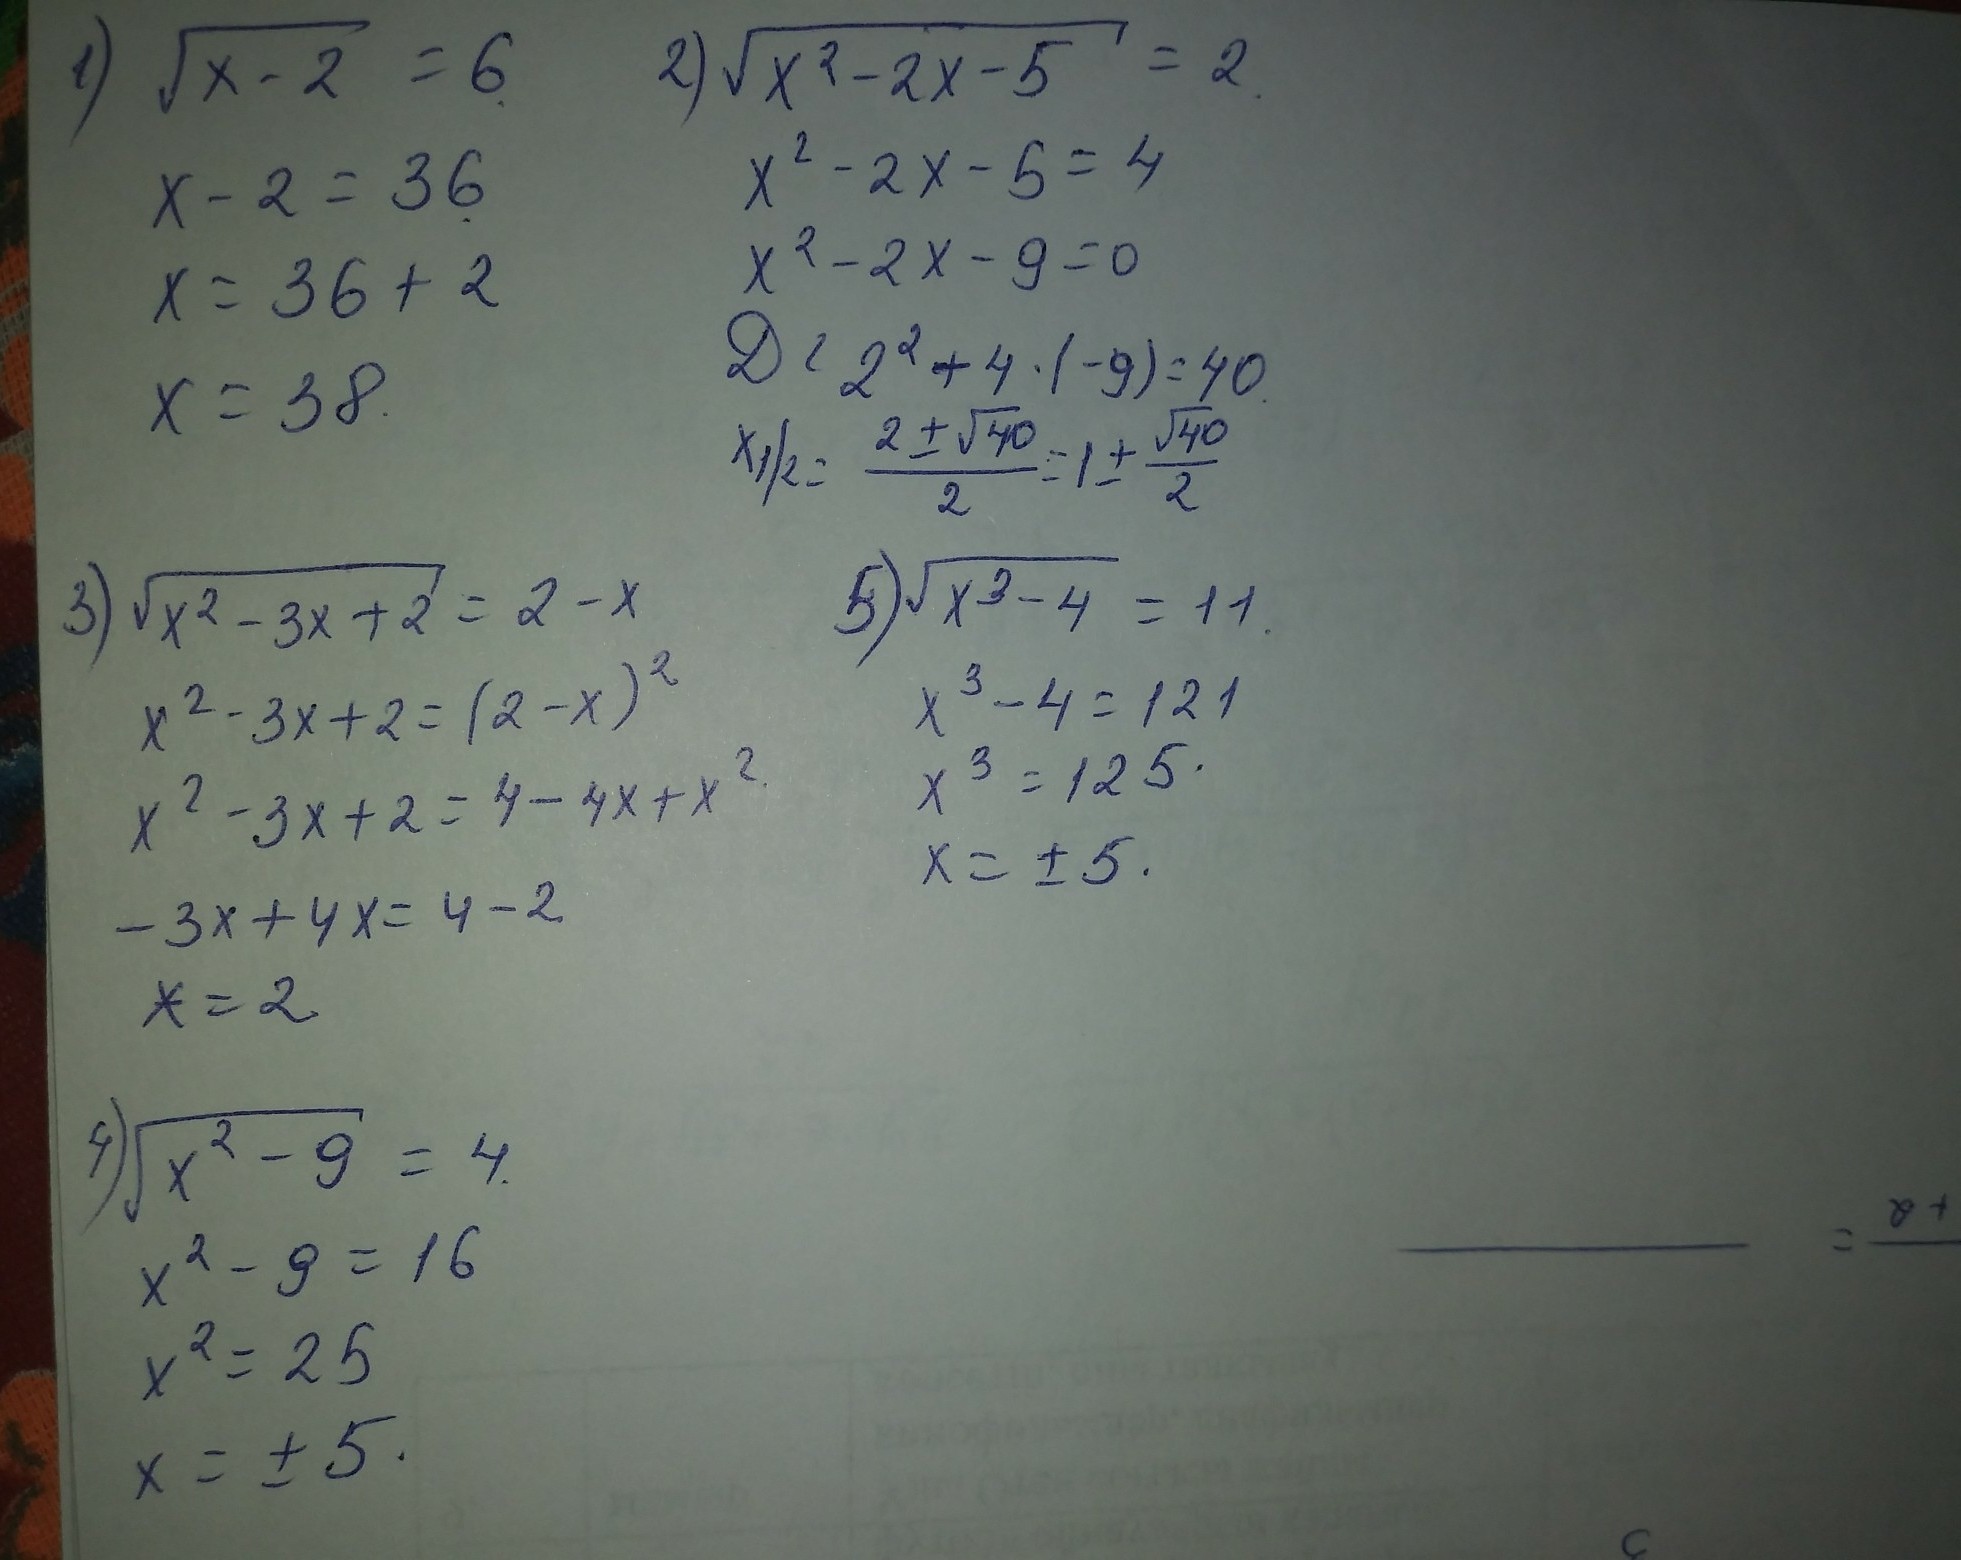 1) √x-2 = 6
x - 2 = 36
x = 36 + 2
x = 38.
2) √x²-2x-5 = 2.
x² - 2x - 5 = 4
x² - 2x - 9 = 0
D = 2² + 4·(-9) = 40.
x1/2 = 2±√40/2 = 1 ± √40/2
3) √x²-3x+2 = 2 - x
x² - 3x + 2 = (2-x)²
x² - 3x + 2 = 4 - 4x + x².
-3x + 4x = 4 - 2
x = 2
5) √x³-4 = 11.
x³ - 4 = 121
x³ = 125.
x = ±5.
4) √x²-9 = 4.
x² - 9 = 16
x² = 25
x = ±5.